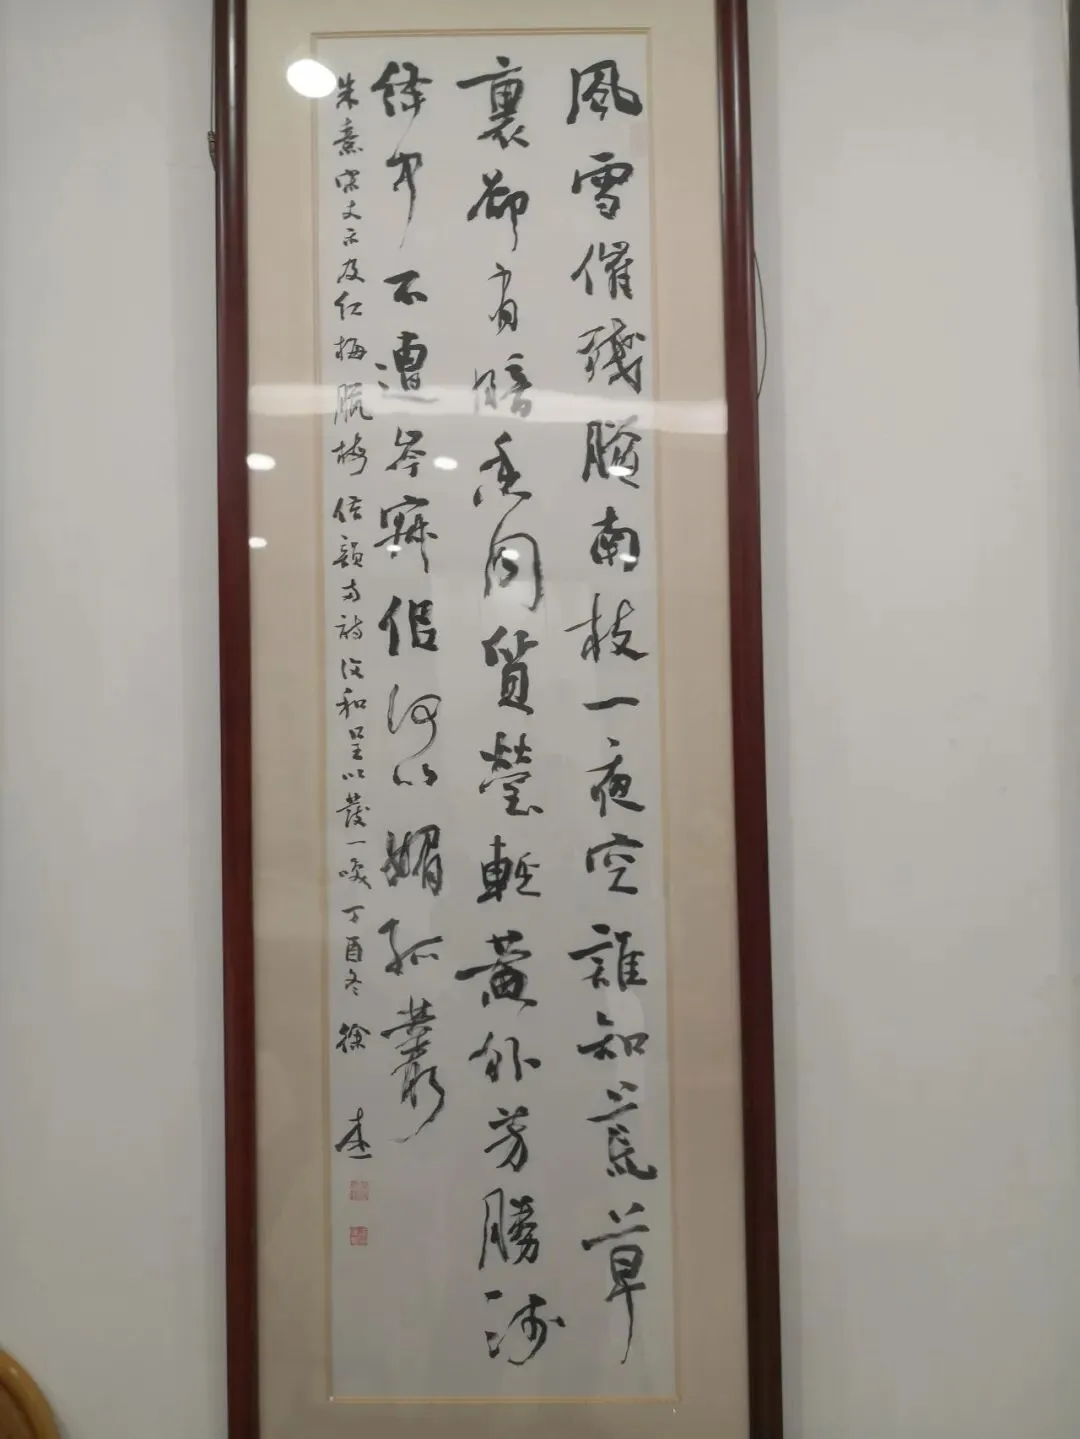 風雪催殘臘南枝一夜空誰知荒草
裏卻有暗香同質瑩輕黃外芳勝淺
絳中不遭岑寂侶何以媚孤叢
朱熹宋丈示及红梅臘梅借韻两詩復和呈以發一咲丁酉冬徐